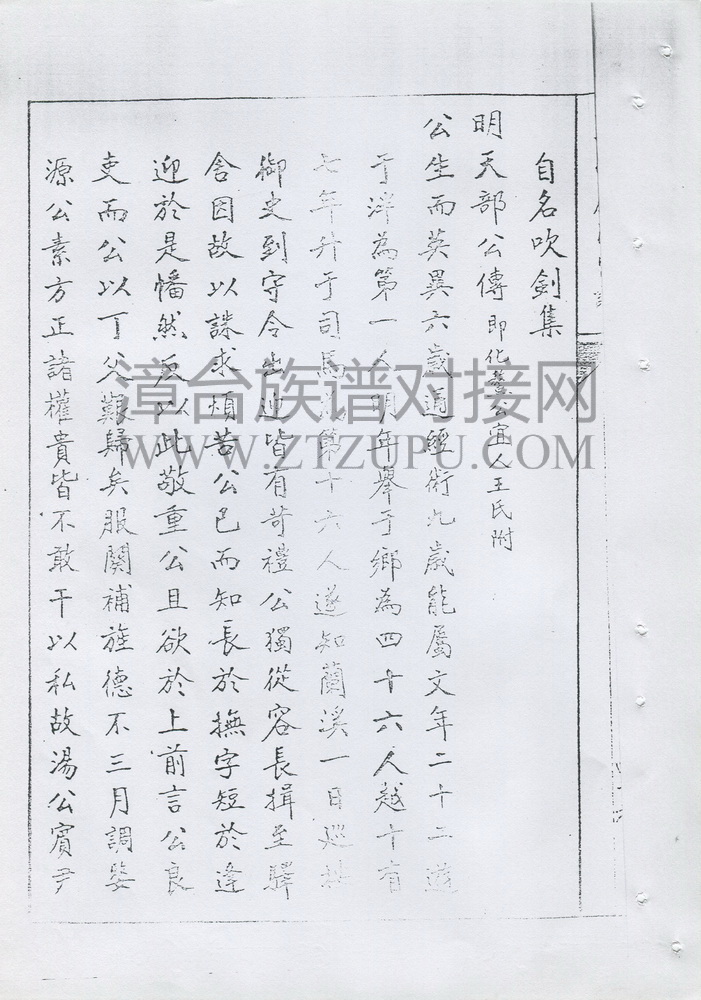 自名吹劍集
明天部公傳即化公宜人王氏附
公生而英異六歲通經術九歲能屬文年二十二遊
于泮為第一人明年舉于鄉為四十六人越十有
七年升于司馬第十六人遂知蘭溪一日巡按
御史到守令出迎皆有苛禮公獨從容長揖至驛
舍因故以誅求煩苦公已而知長於撫字短於逢
迎於是幡然反以此敬重公且欲於上前言公良
吏而公以丁父艱歸矣服闋補旌德不三月調婺
源公素方正諸權貴皆不敢干以私故湯公賓尹
漳台族谱对接网
WWW.ZTZUPU.COM